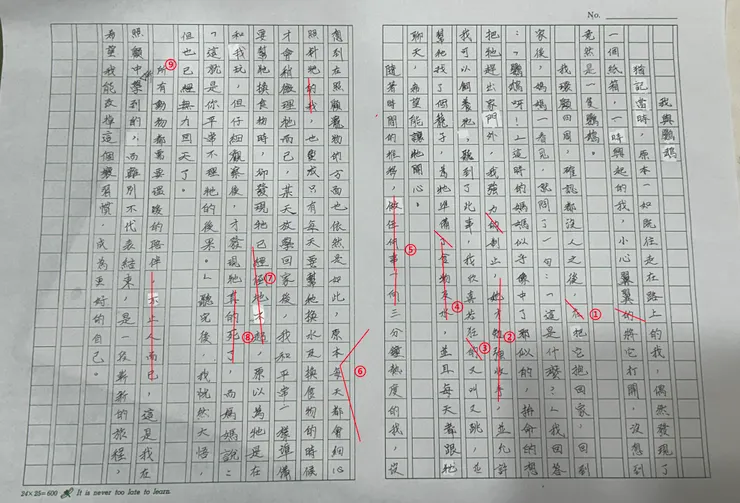 No.
我與鸚鵡
猶記當時，原本一如既往走在路上的我，偶然發現了
一個紙箱，一時興起的我，小心翼翼的將它打開，沒想到
竟然是一隻鸚鵡。
我環顧四周，確認都沒人之後，在把它抱回家，回到
家後，媽媽一看見，就問了一句：「這是什麼？」我回答
：「鸚鵡呀！」這時的媽媽似乎像中了邪似的，拚命的想
把牠趕出家門外，我強力的制止，她才勉強收手，並允許
我可以飼養牠，聽到了此事，我欣喜若狂的又叫又跳，也
幫牠找了個籠子，為牠準備了食物及水，並且每天都跟牠
聊天，希望能讓牠開心。
隨著時間的推移，做任何事一向三分鐘熱度的我，沒
想到在照顧寵物的方面也依然是如此，原本每天都會細心
照料牠的我，也變成只有每天要幫牠換水及換食物的時候
才會稍微理牠而已，某天放學回家後，我和平常一樣準備
要幫牠換食物時，卻發現牠已經
，原以為牠是在
和我玩，但仔細觀察後，才發現牠真的死了，而媽媽說：
「這就是你平常不理牠的後果。」聽完後，我恍然大悟，
但也已經無力回天了。
所有動物都需要溫暖的陪伴，不止人而已，這是我在
照顧中學到的，而離別不代表結束，是一段嶄新的旅程，
希望我能改掉這個壞習慣，成為更好的自己。
①
②
③
④
⑤
⑥
⑦
⑧
⑨
24×25=600 It is never too late to learn.